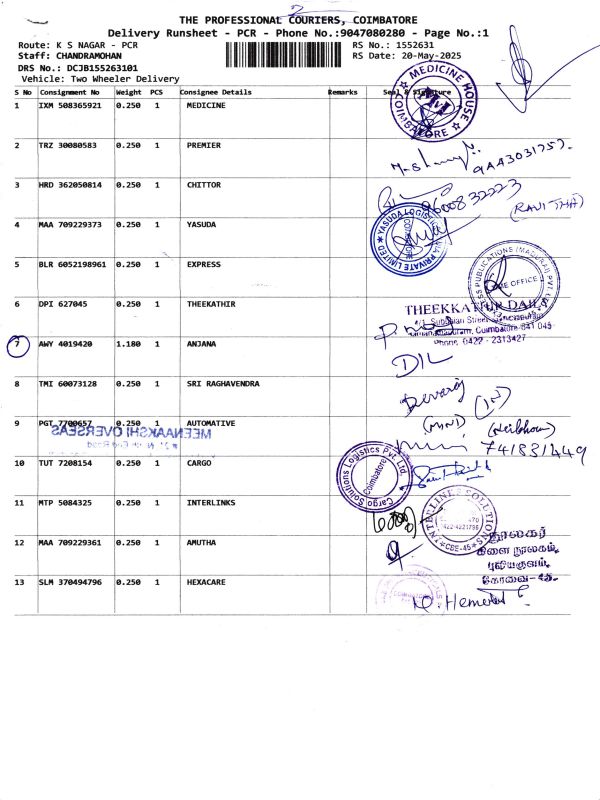 THE PROFESSIONAL COURIERS, COIMBATORE
Delivery Runsheet - PCR - Phone No.:9047080280 - Page No.:1
Route: K S NAGAR - PCR
RS No.: 1552631
Staff: CHANDRAMOHAN
RS Date: 20-May-2025
DRS No.: DCJB155263101
Vehicle: Two Wheeler Delivery
S No Consignment No Weight PCS Consignee Details Remarks Seal & Signature
1 IXM 508365921 0.250 1 MEDICINE
MEDICINE HOUSE
COIMBATORE
2 TRZ 30080583 0.250 1 PREMIER
3 HRD 362050814 0.250 1 CHITTOR
9600832223
(RAVITHA)
4 MAA 709229373 0.250 1 YASUDA
5 BLR 6052198961 0.250 1 EXPRESS
6 DPI 627045 0.250 1 THEEKATHIR
THEEKKATHIR DAILY
Coimbatore 641 045
Phone: 0422 - 2313427
7 AWY 4019420 1.180 1 ANJANA
DIL
8 TMI 60073128 0.250 1 SRI RAGHAVENDRA
Devaraj
9 PGT 7700657 0.250 1 AUTOMATIVE
MEENAAKSHI OVERSEAS
10 TUT 7208154 0.250 1 CARGO
Cargo Solutions Logistics Pvt. Ltd.
Coimbatore
11 MTP 5084325 0.250 1 INTERLINKS
CBE-45
12 MAA 709229361 0.250 1 AMUTHA
நூலகர்
கிளை நூலகம்,
புலியகுளம்,
கோவை-45.
13 SLM 370494796 0.250 1 HEXACARE